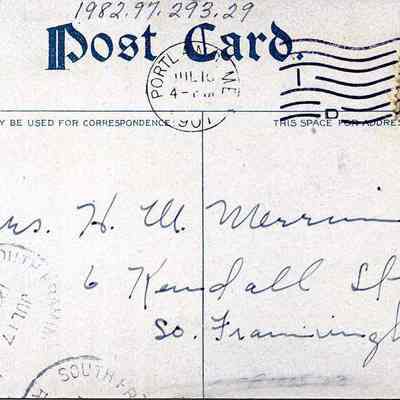 1982.97.293.29
Post Card.
PORTLAND, ME
JUL 16
4- PM
1
D
Y BE USED FOR CORRESPONDENCE
THIS SPACE FOR ADDRES
rs. H. M. Merri
6 Kendall St
So. Framingh
SOUTH FRAMIN
JUL 17
SOUTH FR